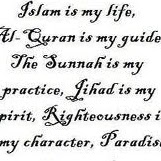 Islam is my life,
Al-Quran is my guide
The Sunnah is my
practice, Jihad is my
pirit, Righteousness i
my character, Paradis